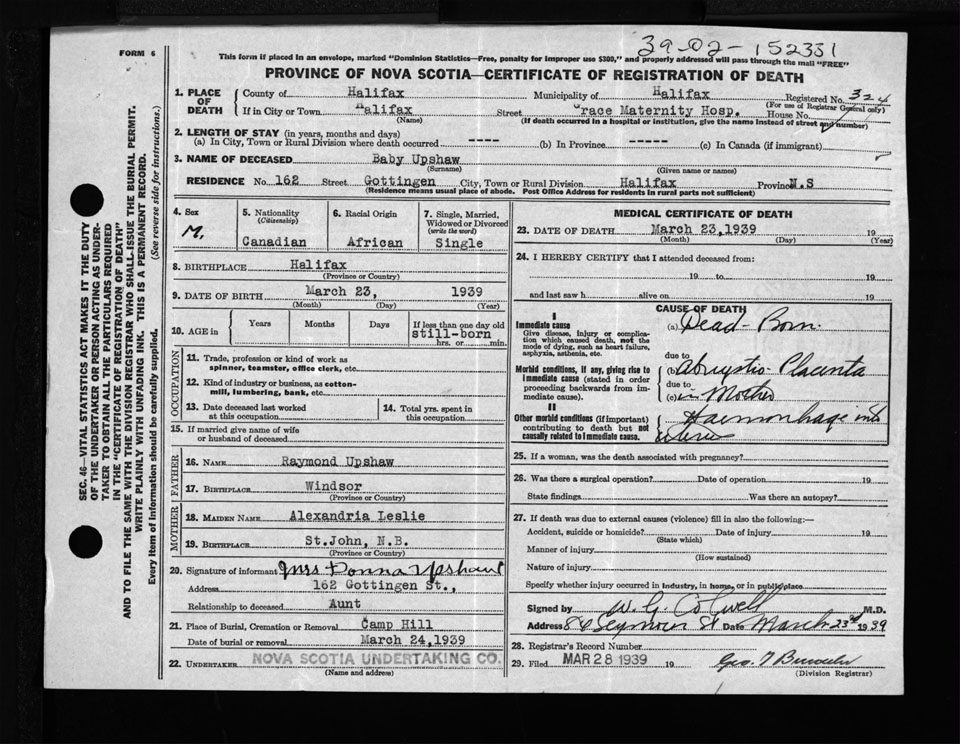 39-02-152331
FORM 6
This form if placed in an envelope, marked "Dominion Statistics—Free, penalty for improper use $300," and properly addressed will pass through the mail "FREE"
PROVINCE OF NOVA SCOTIA—CERTIFICATE OF REGISTRATION OF DEATH
1. PLACE OF DEATH County of Halifax Municipality of Halifax Registered No. 324
(For use of Registrar General only)
If in City or Town Halifax Street Grace Maternity Hosp. House No.
(Name) (If death occurred in a hospital or institution, give the name instead of street and number)
2. LENGTH OF STAY (in years, months and days)
(a) In City, Town or Rural Division where death occurred ---- (b) In Province ----- (c) In Canada (if immigrant)
3. NAME OF DECEASED Baby Upshaw
(Surname) (Given name or names)
RESIDENCE No. 162 Street Gottingen City, Town or Rural Division Halifax Province N.S
(Residence means usual place of abode. Post Office Address for residents in rural parts not sufficient)
4. Sex M.
5. Nationality (Citizenship) Canadian
6. Racial Origin African
7. Single, Married, Widowed or Divorced (write the word) Single
8. BIRTHPLACE Halifax
(Province or Country)
9. DATE OF BIRTH March 23, 1939
(Month) (Day) (Year)
10. AGE in Years Months Days If less than one day old
still-born
hrs. or min.
OCCUPATION
11. Trade, profession or kind of work as
spinner, teamster, office clerk, etc.
12. Kind of industry or business, as cotton-
mill, lumbering, bank, etc.
13. Date deceased last worked
at this occupation
14. Total yrs. spent in
this occupation
15. If married give name of wife
or husband of deceased
FATHER
16. NAME Raymond Upshaw
17. BIRTHPLACE Windsor
(Province or Country)
MOTHER
18. MAIDEN NAME Alexandria Leslie
19. BIRTHPLACE St.John, N.B.
(Province or Country)
20. Signature of informant Mrs Donna Upshaw
Address 162 Gottingen St.,
Relationship to deceased Aunt
21. Place of Burial, Cremation or Removal Camp Hill
Date of burial or removal March 24,1939
22. UNDERTAKER NOVA SCOTIA UNDERTAKING CO.
(Name and address)
MEDICAL CERTIFICATE OF DEATH
23. DATE OF DEATH March 23,1939 19
(Month) (Day) (Year)
24. I HEREBY CERTIFY that I attended deceased from:
19 to 19
and last saw h alive on 19
CAUSE OF DEATH
I
Immediate cause
Give disease, injury or complication which caused death, not the mode of dying, such as heart failure, asphyxia, asthenia, etc.
(a) Dead-Born.
due to
Morbid conditions, if any, giving rise to immediate cause (stated in order proceeding backwards from immediate cause).
(b) Placenta
due to
(c) in Mother
II
Other morbid conditions (if important) contributing to death but not causally related to immediate cause.
Haemorrhage into
uterus
25. If a woman, was the death associated with pregnancy?
26. Was there a surgical operation? Date of operation 19
State findings Was there an autopsy?
27. If death was due to external causes (violence) fill in also the following:—
Accident, suicide or homicide? Date of injury 19
(State which)
Manner of injury
(How sustained)
Nature of injury
Specify whether injury occurred in industry, in home, or in public place
Signed by W. G. Colwell M.D.
Address Seymour St Date March 23rd 1939
28. Registrar's Record Number
29. Filed MAR 28 1939 19
(Division Registrar)
SEC. 46—VITAL STATISTICS ACT MAKES IT THE DUTY
OF THE UNDERTAKER OR PERSON ACTING AS UNDER-
TAKER TO OBTAIN ALL THE PARTICULARS REQUIRED
IN THE "CERTIFICATE OF REGISTRATION OF DEATH"
AND TO FILE THE SAME WITH THE DIVISION REGISTRAR WHO SHALL ISSUE THE BURIAL PERMIT.
WRITE PLAINLY WITH UNFADING INK. THIS IS A PERMANENT RECORD.
Every item of information should be carefully supplied. (See reverse side for instructions.)